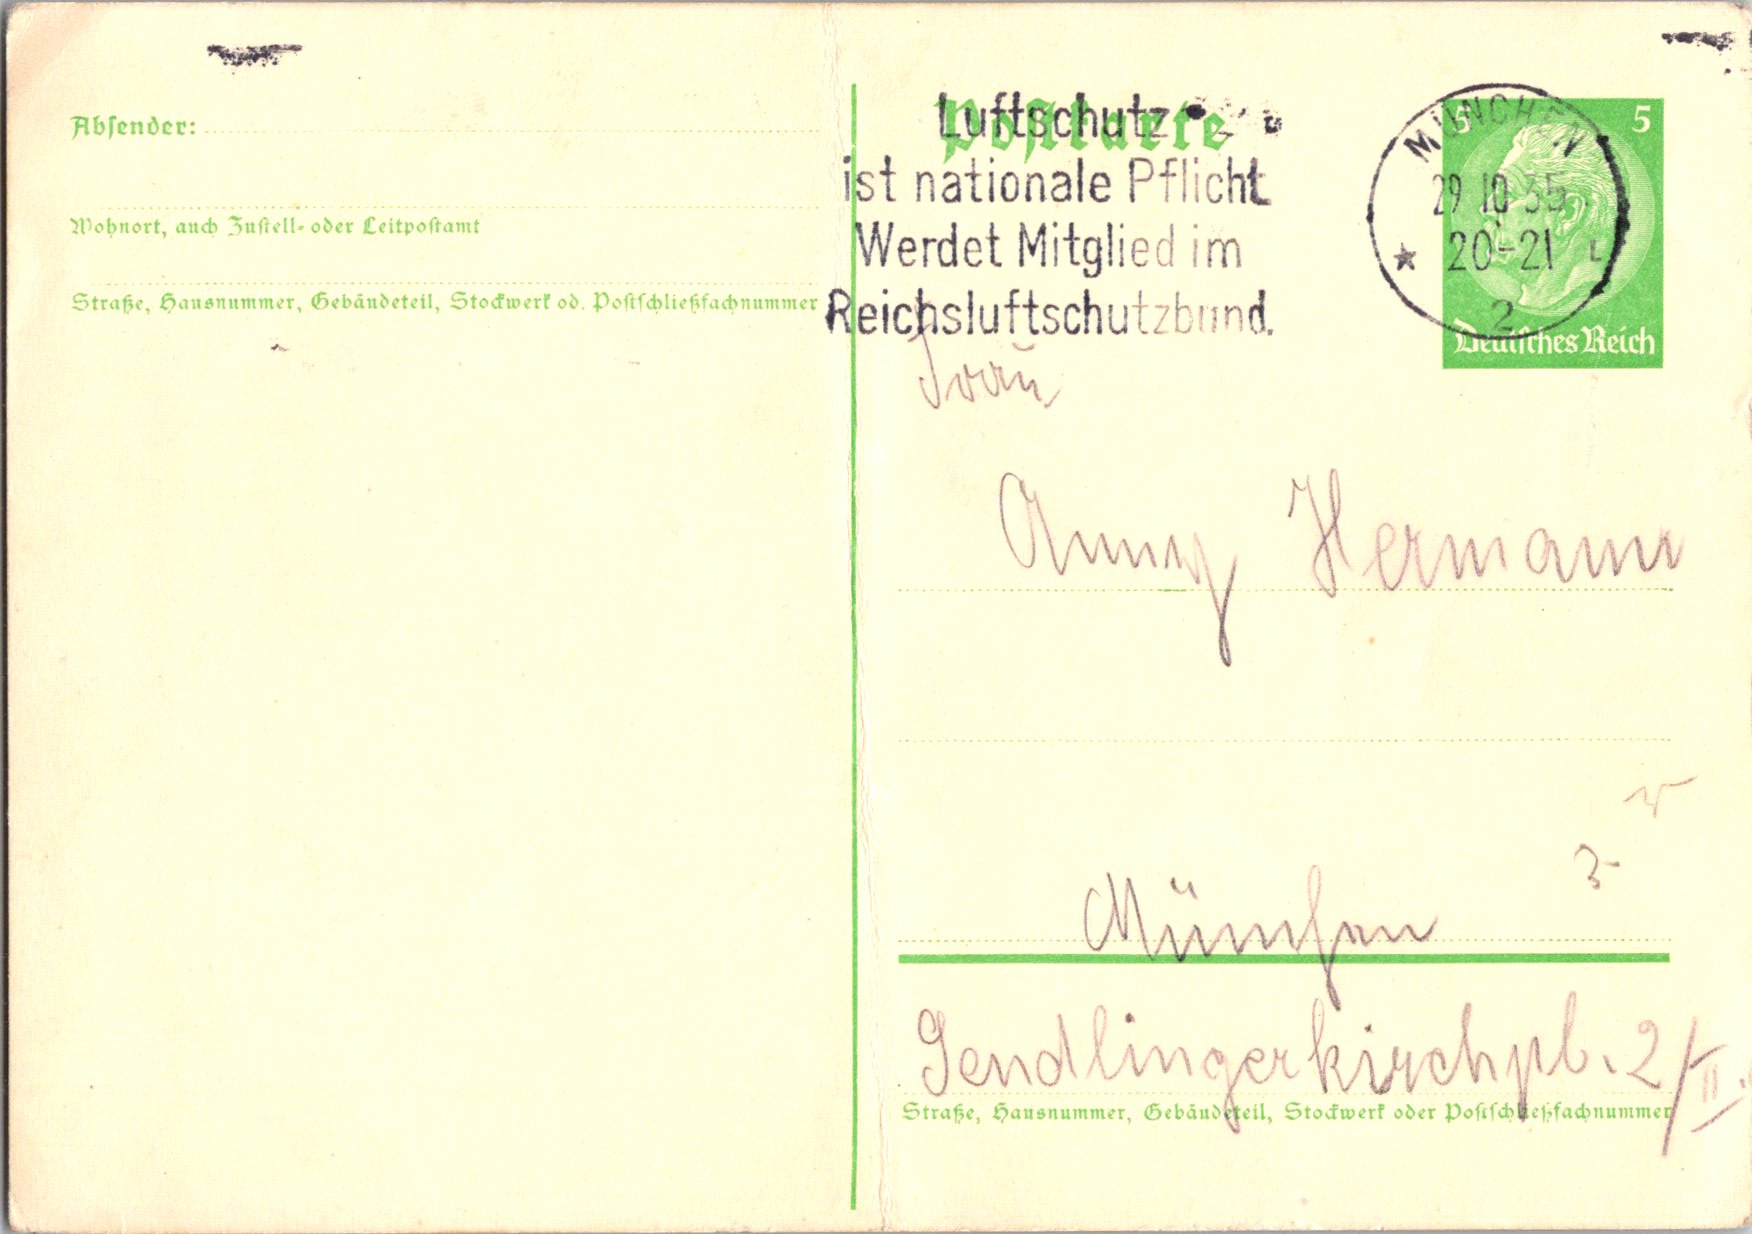 Absender:
Wohnort, auch Zustell- oder Leitpostamt
Straße, Hausnummer, Gebäudeteil, Stockwerk od. Postschließfachnummer
Postkarte
Luftschutz
ist nationale Pflicht
Werdet Mitglied im
Reichsluftschutzbund.
MÜNCHEN
29 10 35
★ 20-21 L
2
5 5
Deutsches Reich
Frau
Anny Hermann
3
München
Sendlingerkirchpl. 2/II.
Straße, Hausnummer, Gebäudeteil, Stockwerk oder Postschließfachnummer